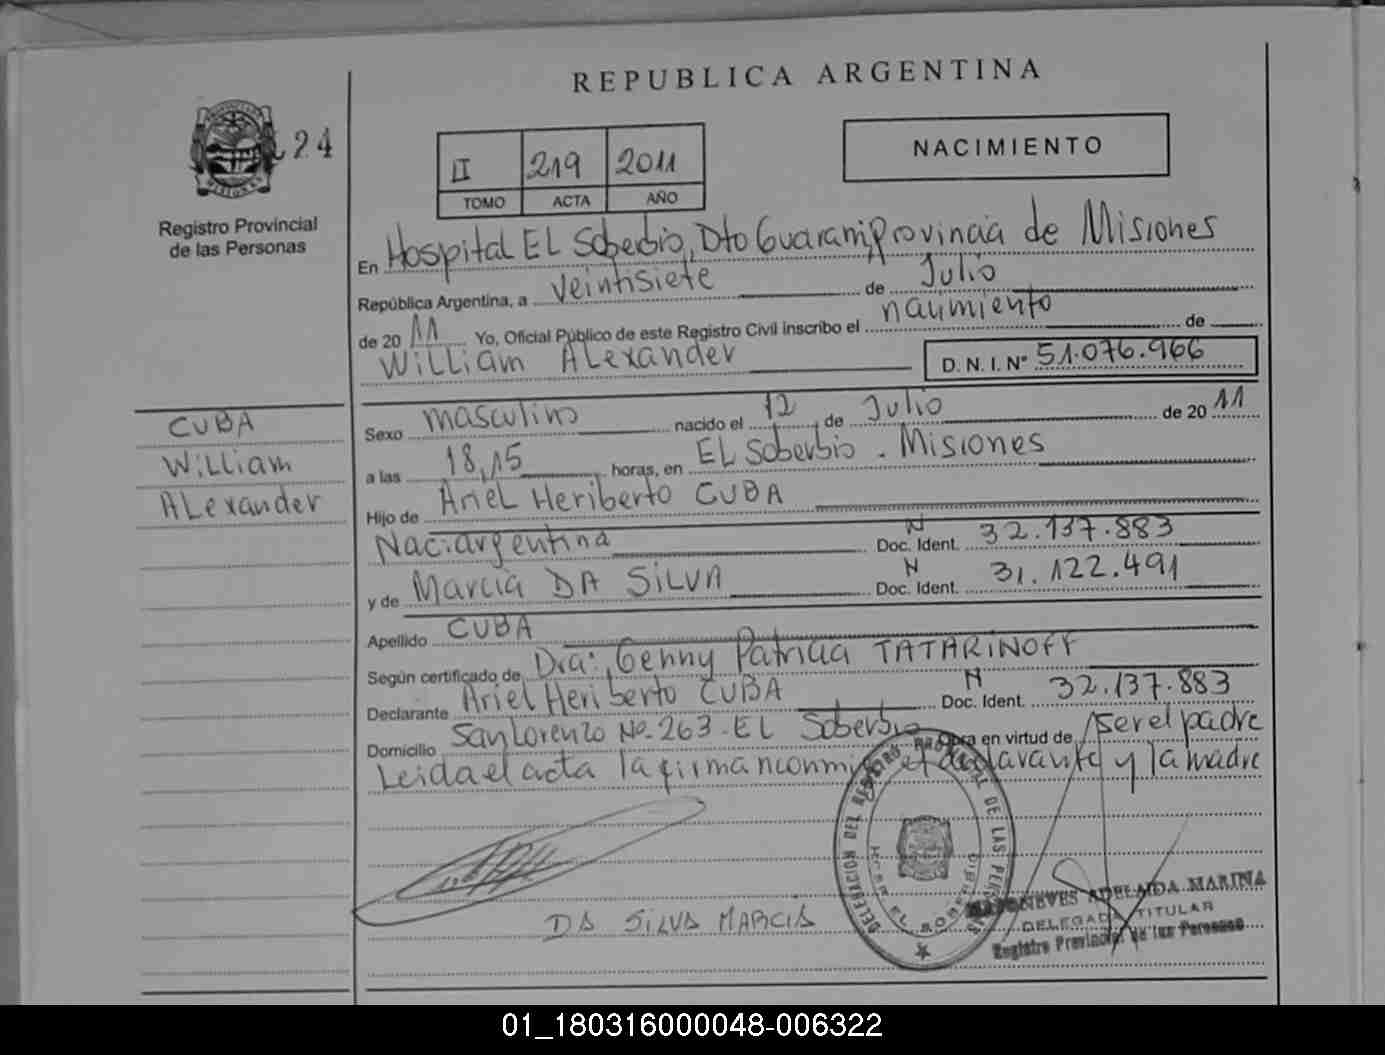 REPUBLICA ARGENTINA
24
Registro Provincial
de las Personas
II 219 2011
TOMO ACTA AÑO
NACIMIENTO
En Hospital EL Soberbio, Dto Guarani Provincia de Misiones
República Argentina, a veintisiete de Julio
de 20 11 Yo, Oficial Público de este Registro Civil inscribo el nacimiento de
William Alexander D. N. I. Nº 51.076.966
CUBA
William
Alexander
Sexo masculino nacido el 12 de Julio de 20 11
a las 18,15 horas, en EL Soberbio - Misiones
Hijo de Ariel Heriberto CUBA
Nac: argentina Doc. Ident. N 32.137.883
y de Marcia DA SILVA Doc. Ident. N 31.122.491
Apellido CUBA
Según certificado de Dra: Genny Patricia TATARINOFF
Declarante Ariel Heriberto CUBA Doc. Ident. N 32.137.883
Domicilio San Lorenzo Nº 263 - EL Soberbio Obra en virtud de ser el padre
Leida el acta la firman conmigo el declarante y la madre
DA SILVA MARCIA
DELEGACION DEL REGISTRO PROVINCIAL DE LAS PERSONAS
EL SOBERBIO
ADELAIDA MARINA
DELEGADA TITULAR
Registro Provincial de las Personas
01_180316000048-006322